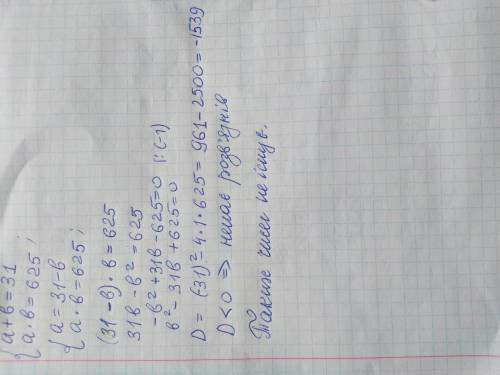 {a+в=31
{a·в=625;
{a=31-в
{a·в=625;
(31-в)·в=625
31в-в²=625
-в²+31в-625=0 |:(-1)
в²-31в+625=0
D = (-31)²-4·1·625=961-2500=-1539
D<0 ⇒ немає розв'язків
Таких чисел не існує.